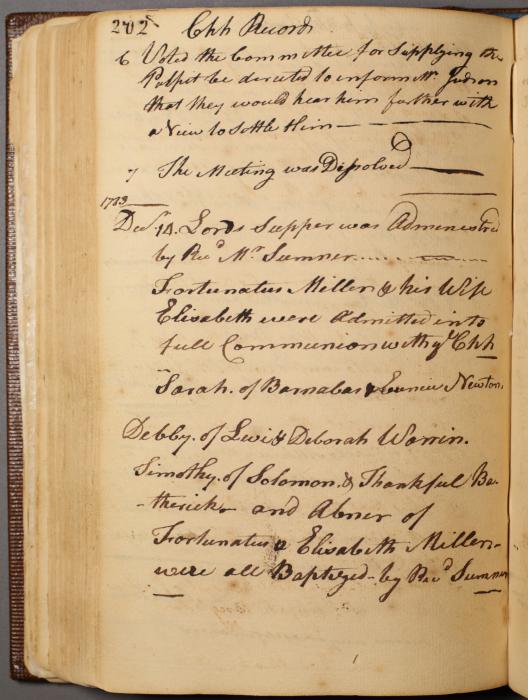 202 Chh Records
6 Voted the Committee for Supplying the
Pulpit be directed to inform Mr. Judson
that they would hear him further with
a View to Settle Him
7 The Meeting was Dissolved
1783
Decr 14. Lords Supper was Administred
by Revd Mr Sumner
Fortunatus Miller & his Wife
Elisabeth were Admitted into
full Communion with ye Chh
Sarah. of Barnabas & Eunice Newton.
Debby. of Lewis & Deborah Warrin.
Timothy. of Solomon. & Thankful Ba-
-therick and Abner of
Fortunatus & Elisabeth Miller
were all Baptized by Revd Sumner